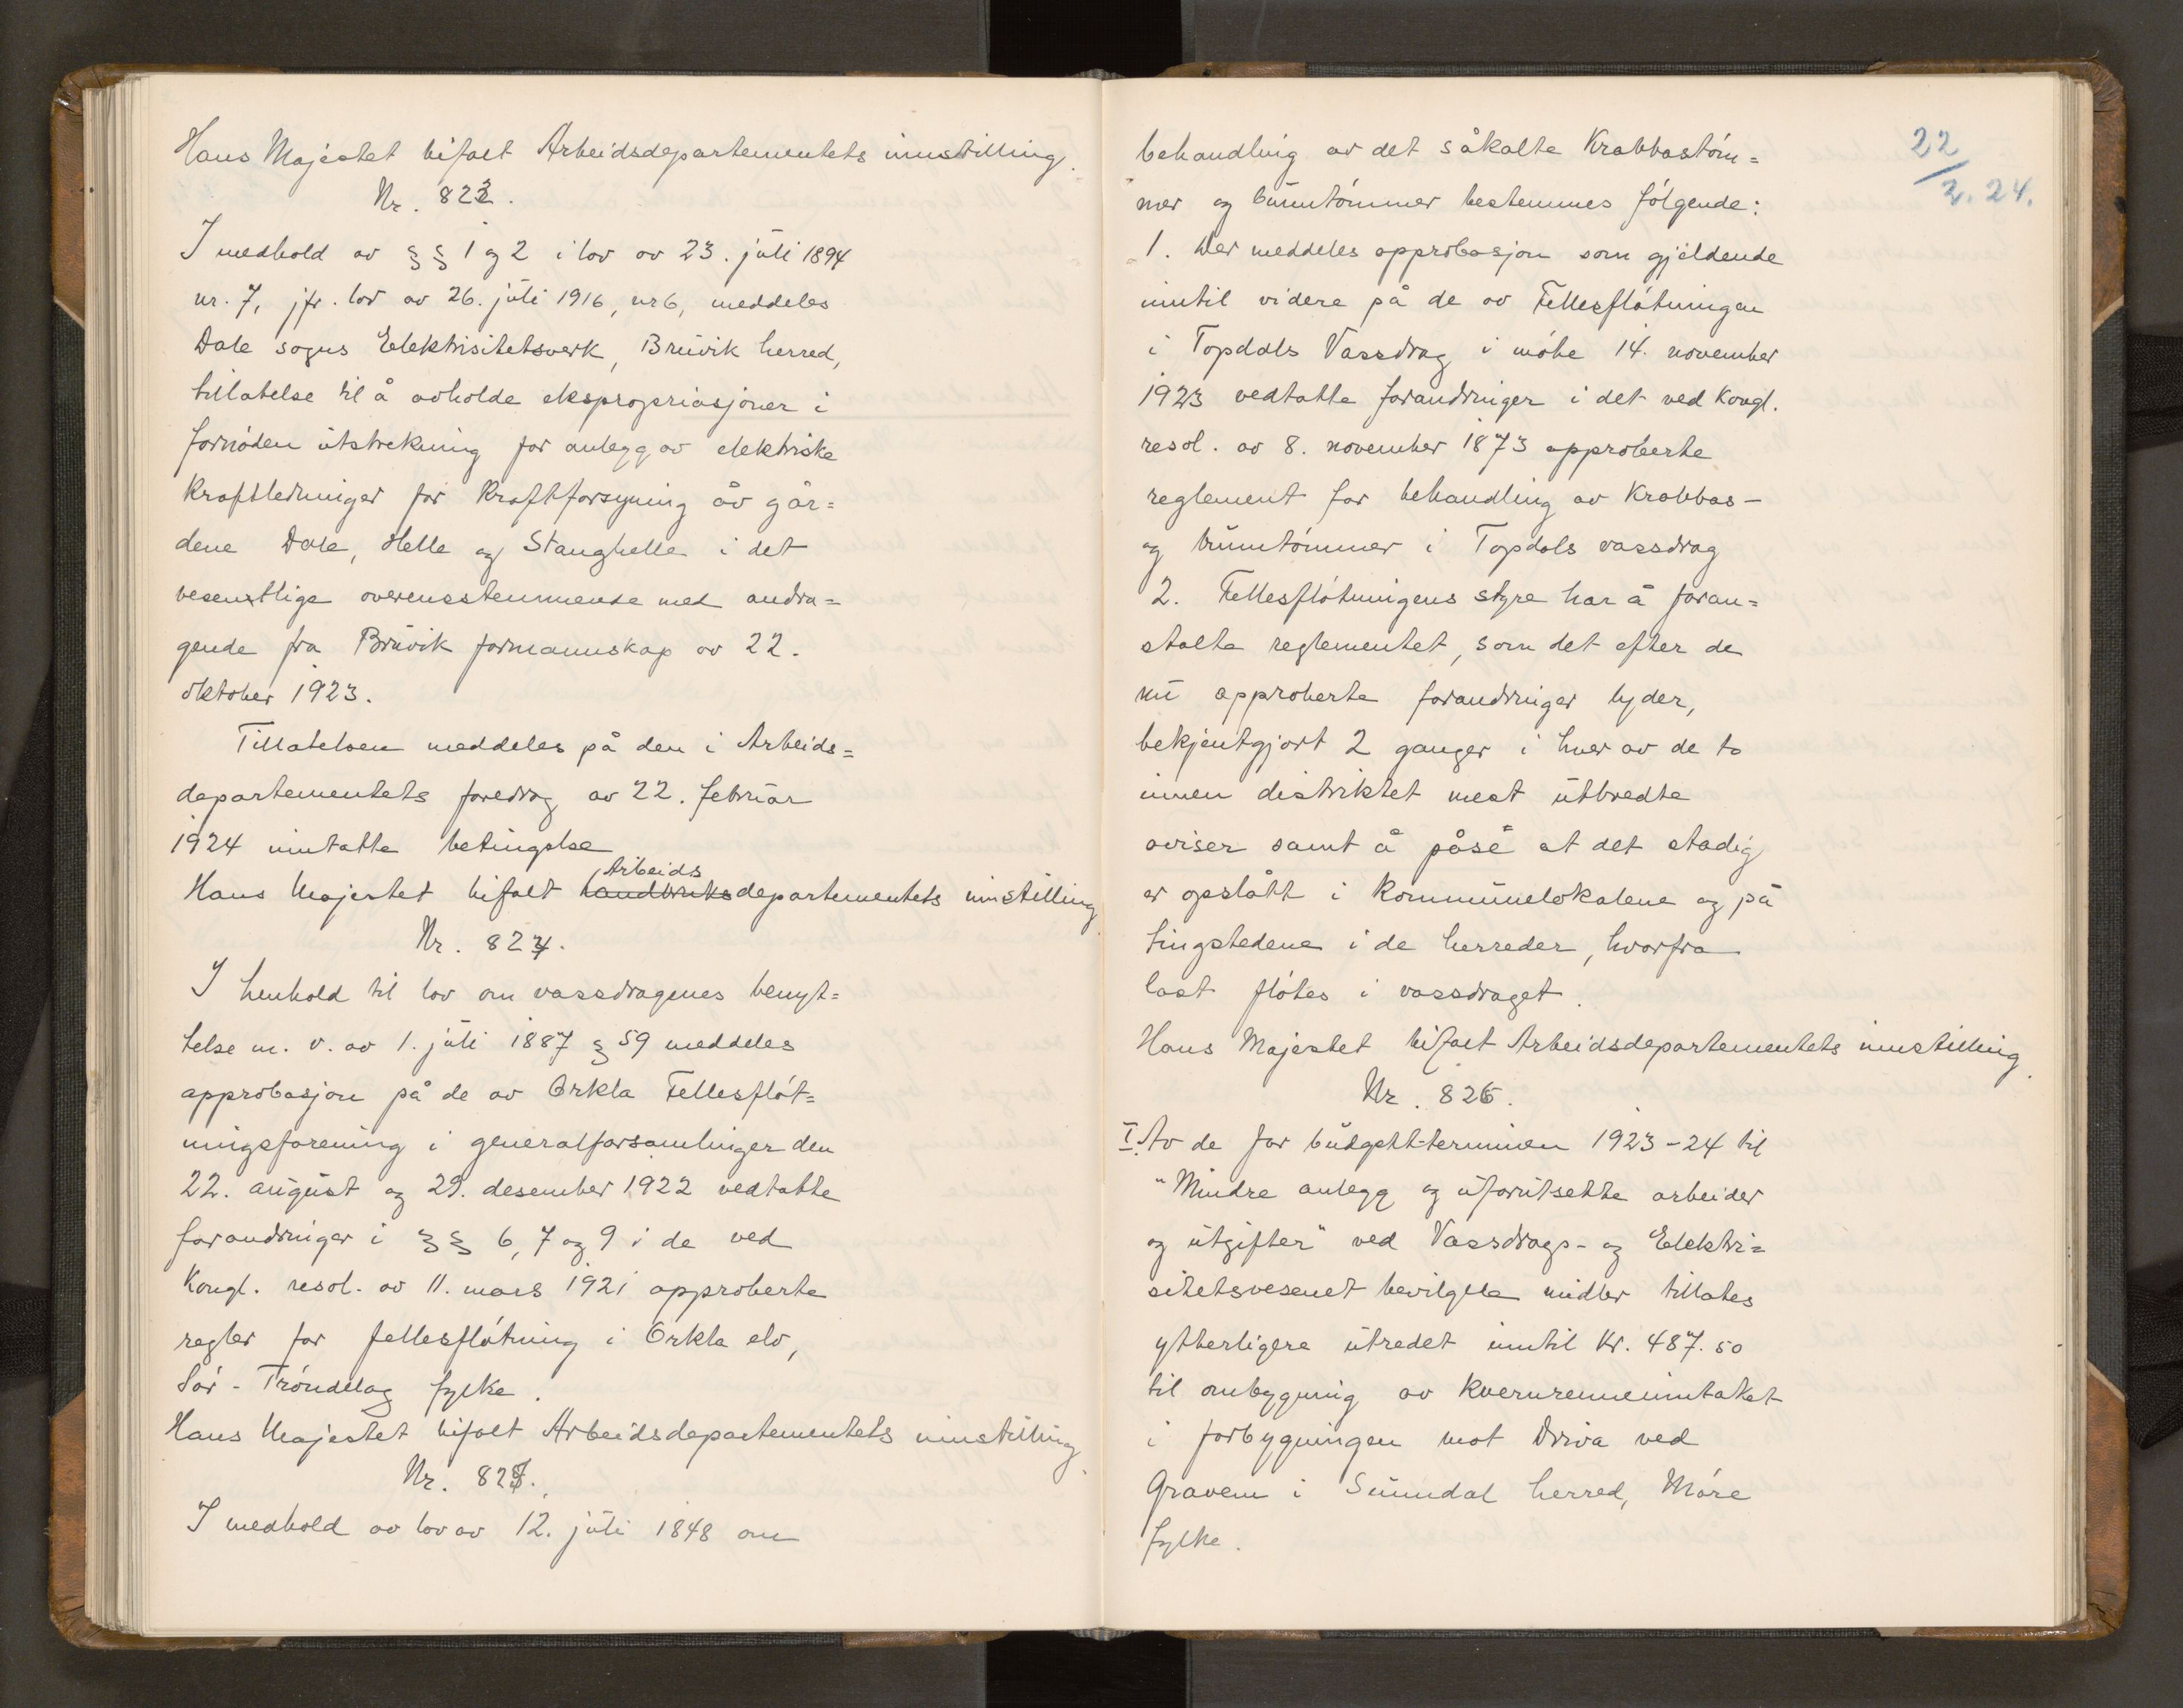 Hans Majestet bifalt Arbeidsdepartementets innstilling.
Nr. 823.
I medhold av §§ 1 og 2 i lov av 23. juli 1894
nr. 7, jfr. lov av 26. juli 1916, nr 6, meddeles
Dale sogns Elektrisitetsverk, Bruvik herred,
tillatelse til å avholde ekspropriasjoner i
fornøden utstrekning for anlegg av elektriske
kraftledninger for kraftforsyning av går=
dene Dale, Helle og Stanghelle i det
vesentlige overensstemmende med andra=
gende fra Bruvik formannskap av 22.
oktober 1923.
Tillatelsen meddeles på den i Arbeids=
departementets foredrag av 22. februar
1924 inntatte betingelse
Arbeids
Hans Majestet bifalt landbruksdepartementets innstilling.
Nr. 824.
I henhold til lov om vassdragenes benyt=
telse m. v. av 1. juli 1887 § 59 meddeles
approbasjon på de av Orkla Fellesfløt=
ningsforening i generalforsamlinger den
22. august og 29. desember 1922 vedtatte
forandringer i §§ 6, 7 og 9 i de ved
Kongl. resol. av 11. mars 1921 approberte
regler for fellesfløtning i Orkla elv,
Sør-Trøndelag fylke.
Hans Majestet bifalt Arbeidsdepartementets innstilling.
Nr. 825.
I medhold av lov av 12. juli 1848 om
22/2. 24.
behandling av det såkalte Krabbastøm=
mer og bunntømmer bestemmes følgende:
1. Der meddeles approbasjon som gjeldende
inntil videre på de av Fellesfløtningen
i Topdals Vassdrag i møte 14. november
1923 vedtatte forandringer i det ved Kongl.
resol. av 8. november 1873 approberte
reglement for behandling av Krabbas-
og bunntømmer i Topdals vassdrag
2. Fellesfløtningens styre har å foran=
stalte reglementet, som det efter de
nu approberte forandringer lyder,
bekjentgjort 2 ganger i hver av de to
innen distriktet mest utbredte
aviser samt å påsé at det stadig
er opslått i kommunelokalene og på
tingstedene i de herreder, hvorfra
last fløtes i vassdraget.
Hans Majestet bifalt Arbeidsdepartementets innstilling.
Nr. 826.
I. Av de for budgett-terminen 1923-24 til
"Mindre anlegg og uforutsette arbeider
og utgifter" ved Vassdrags- og Elektri=
sitetsvesenet bevilgede midler tillates
ytterligere utredet inntil kr. 487.50
til ombygning av kvernrenneinntaket
i forbygningen mot Driva ved
Gravem i Sunndal herred, Møre
fylke.